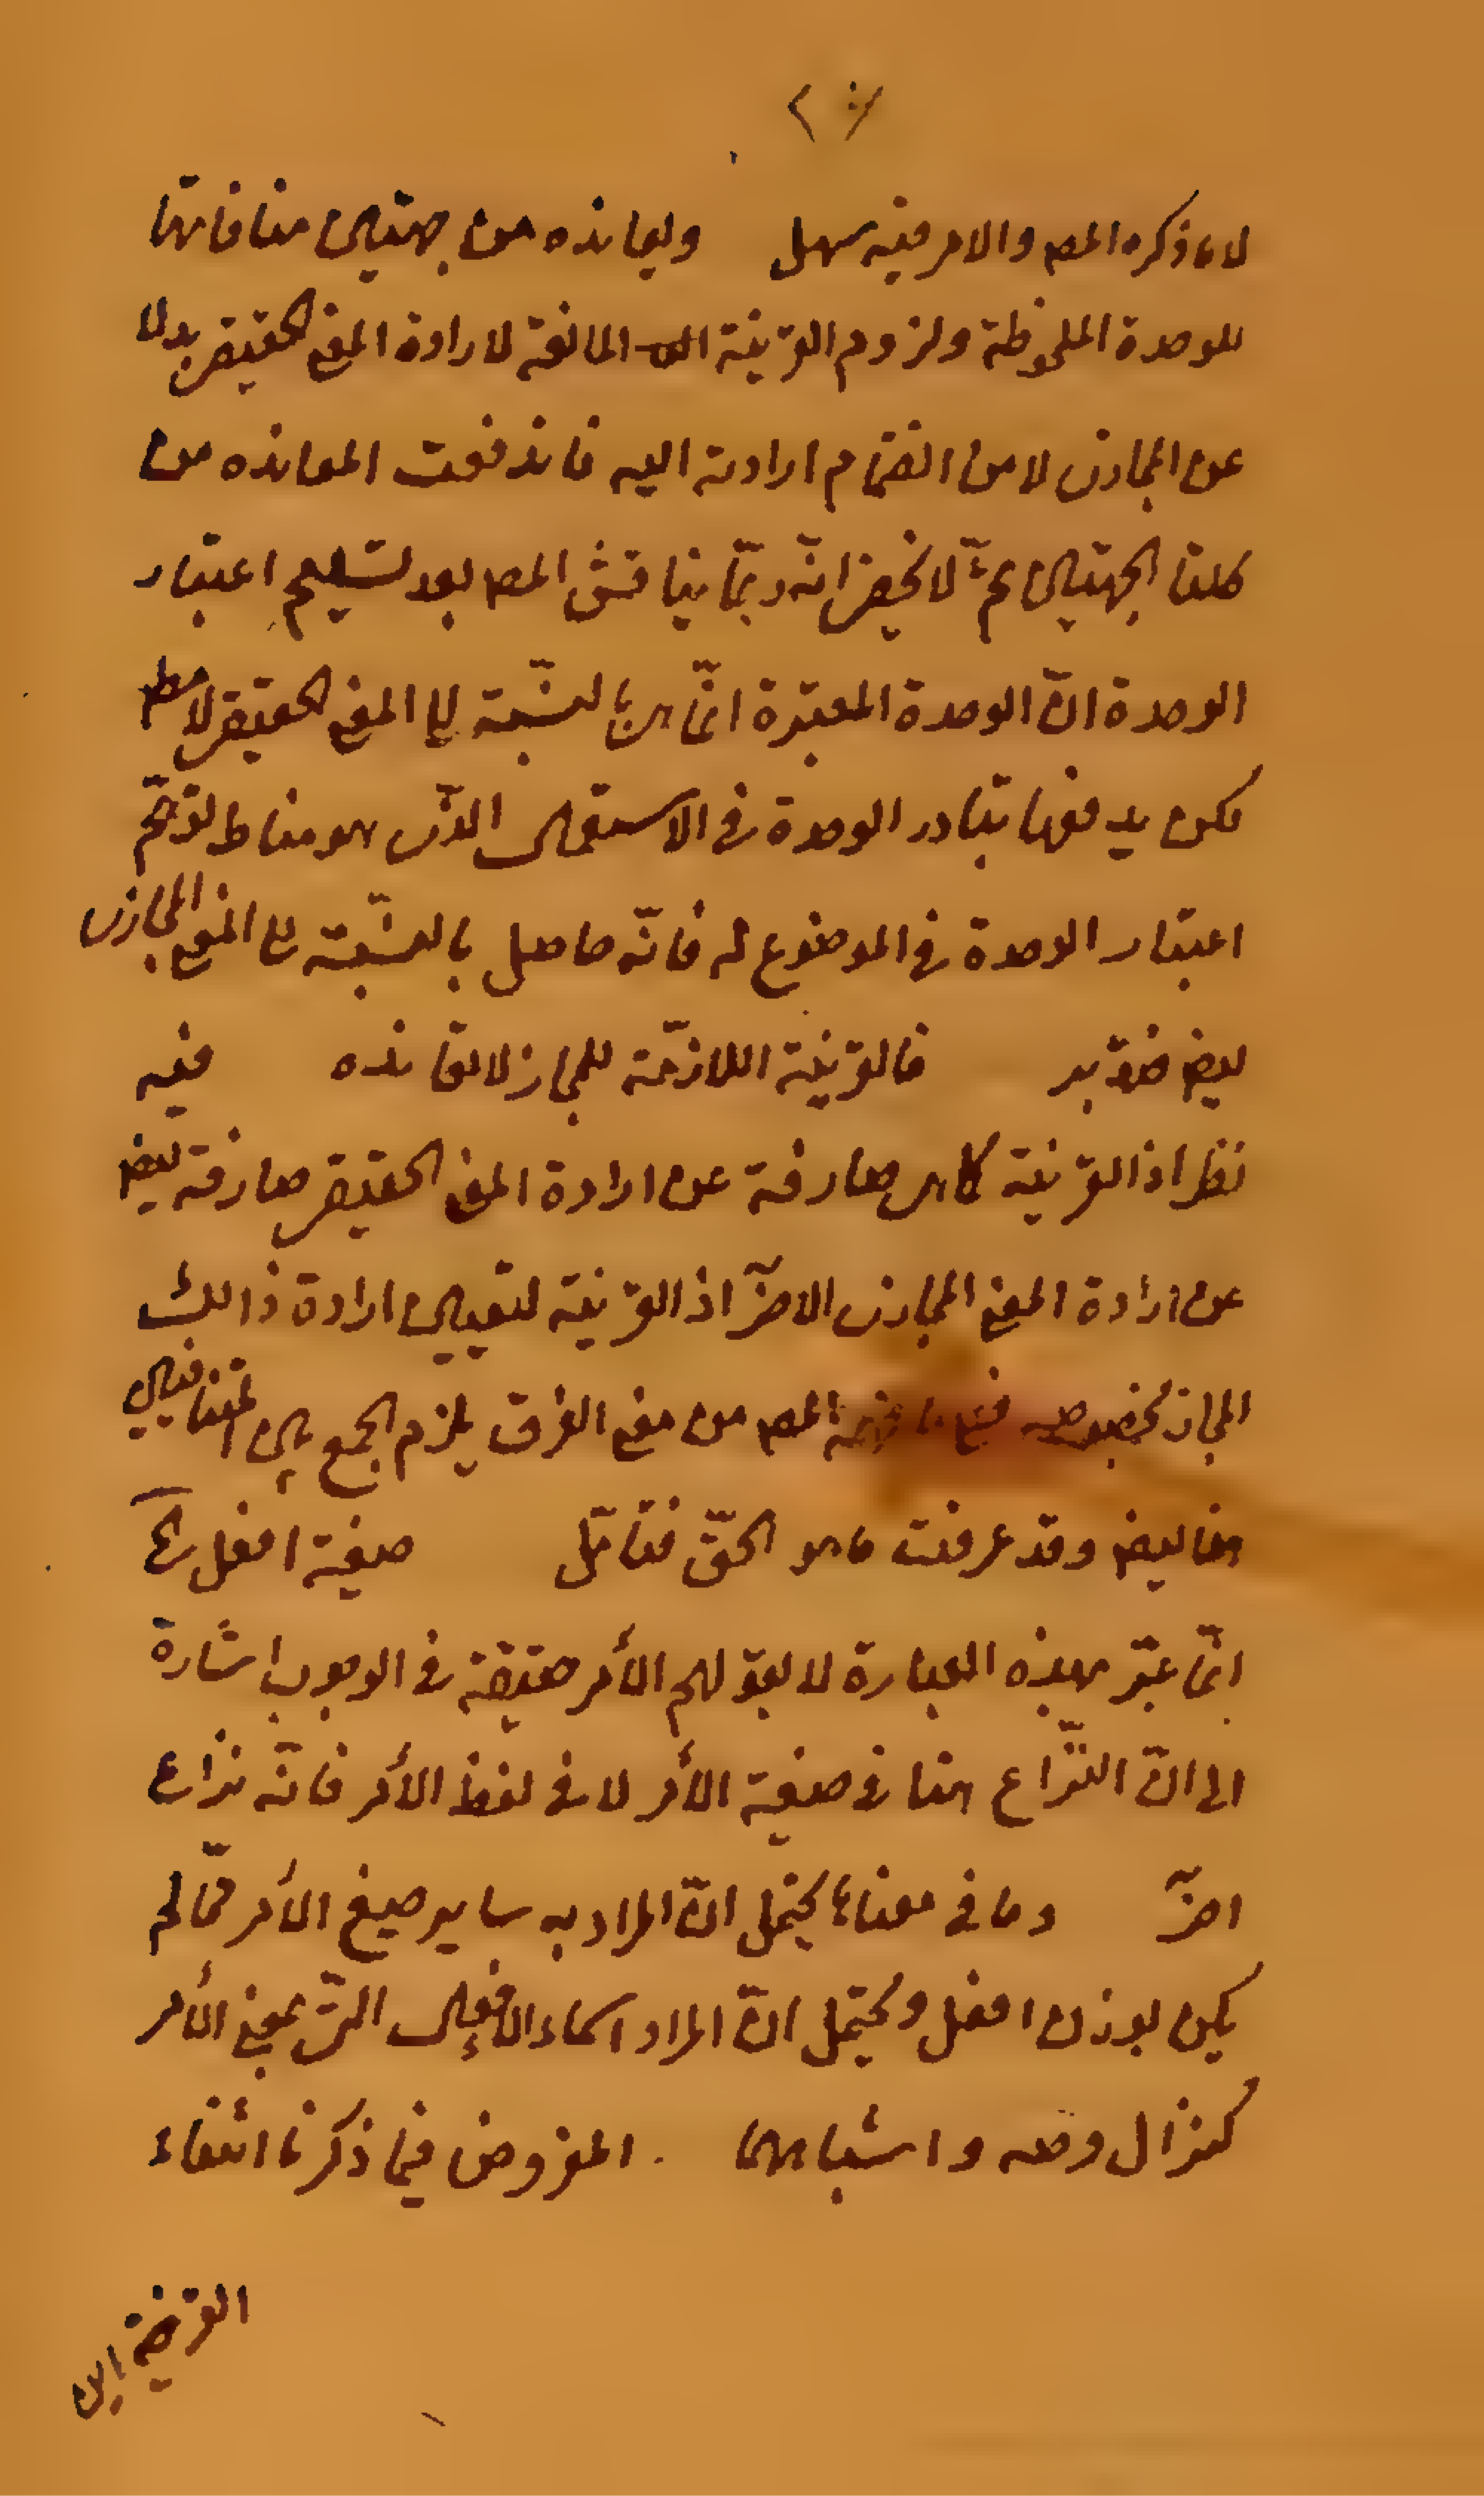 لا ما ذكره المص والامر فيه سهل ويعانده من جهتين منافاتها
للوحدة الملحوظة ولزوم القرينة المانعة لارادة المعنى الحقيقي بدلا
عن المجازي لا من انضمام ارادته اليه فاندفعت المعانده من
كلتا الجهتين ثمّ لا يخفى انّه ربّما يناقش المص بعد تسليم اعتبار
الوحدة انّ الوحدة المعتبرة انّما هي بالنسّبة الى المعنى الحقيقي لا مط
لكن يدفعها تبادر الوحدة في الاستعمال الذّي هو مناط لتوهّم
اعتبار الوحدة في الموضوع له فانّه حاصل بالنسّبة الى المعنى المجازي
ايض فتدّبر فالقرينة اللازمّة للمجاز لا تعانده فيه
نظر اذ القرينة كما هي صارفة عن ارادة المعنى الحقيقي صارفة ايض
عن ارادة المعنى المجازي الاخرّ اذ القرينة لتعيين ارادة ذالك
المجاز بخصوصه المص من منع الفرق يلزم الجمع بين المتنافيين
هنا ايض وقد عرفت ما هو الحقّ فتامّل صيغة افعل الخ
انّما عبّر بهذه العبارة لا بقولهم الأمر حقيقة في الوجوب اشارة
الى انّ النّزاع هنا في صيغة الأمر لا في لفظ الأمر فانّه نزاع
اخرّ وما في معناها يحتمل انّ المراد به ساير صيغ الأمر ممّا لم
يكن بوزن افعل ويحتمل انّ المراد اسماء الافعال التّي بمعنى الأمر
كنزال وصه واشباههما . المفروض فيما ذكرنا انتفاء
القرينة